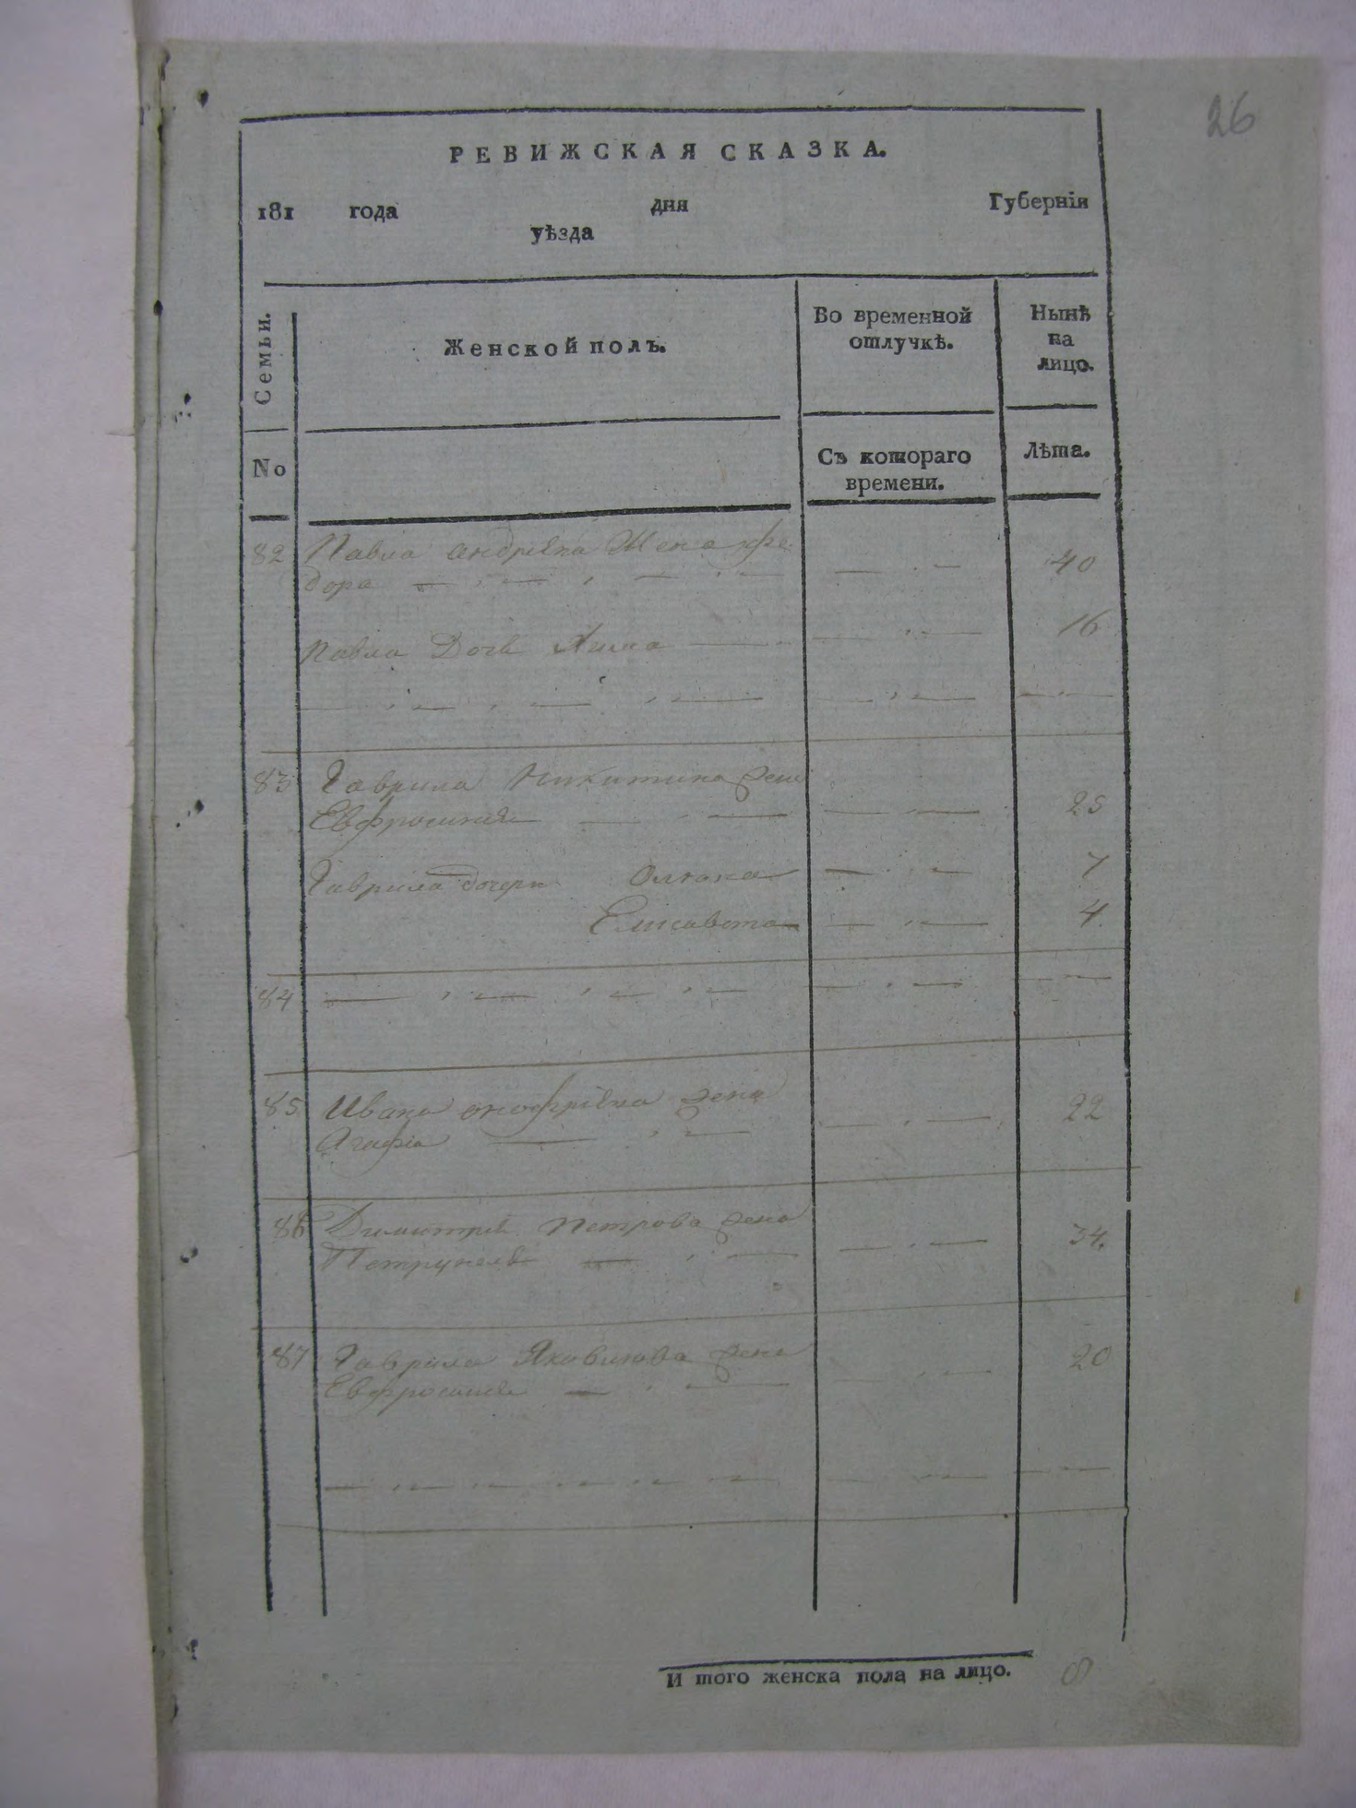 26
РЕВИЖСКАЯ СКАЗКА.
181 года дня Губернія
уѣзда
Семьи.
Женской полъ.
Во временной
отлучкѣ.
Нынѣ
на
лицо.
No
Съ котораго
времени.
Лѣта.
82 Павла Андрѣева Жена Фе
дора 40
Павла Дочь 16
83 Гаврила Никитина жена
Евфросинія 25
Гаврила дочери 7
Елисавета 4.
84
85 Ивана Онофрѣева жена
Агафія 22
86 Димитрія Петрова жена
34.
87 Гаврила Яковлева жена
Евфросинія 20
И того женска пола на лицо. 8